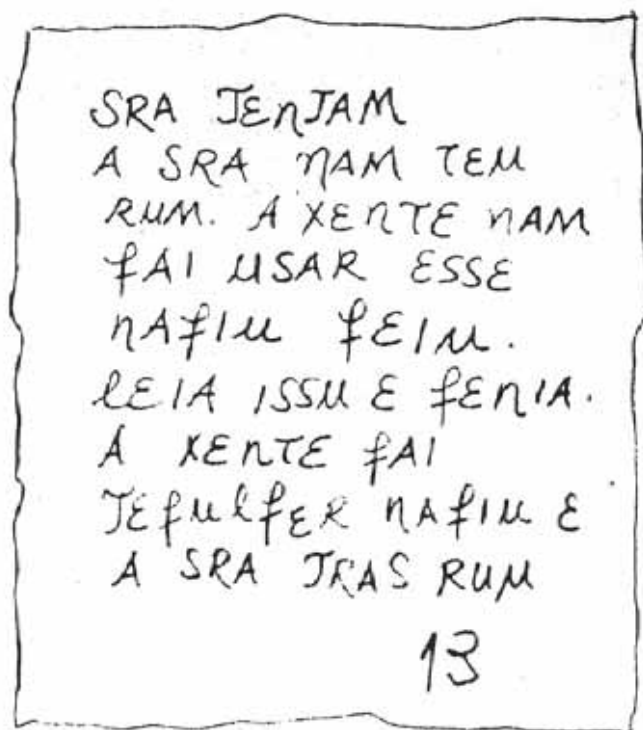 SRA JENJAM
A SRA NAM TEU
RUM. A XENTE NAM
fAI USAR ESSE
NAfIU fEIU.
LEIA ISSU E fENIA.
A XENTE fAI
JEfULfER NAfIU E
A SRA JRAS RUM
13